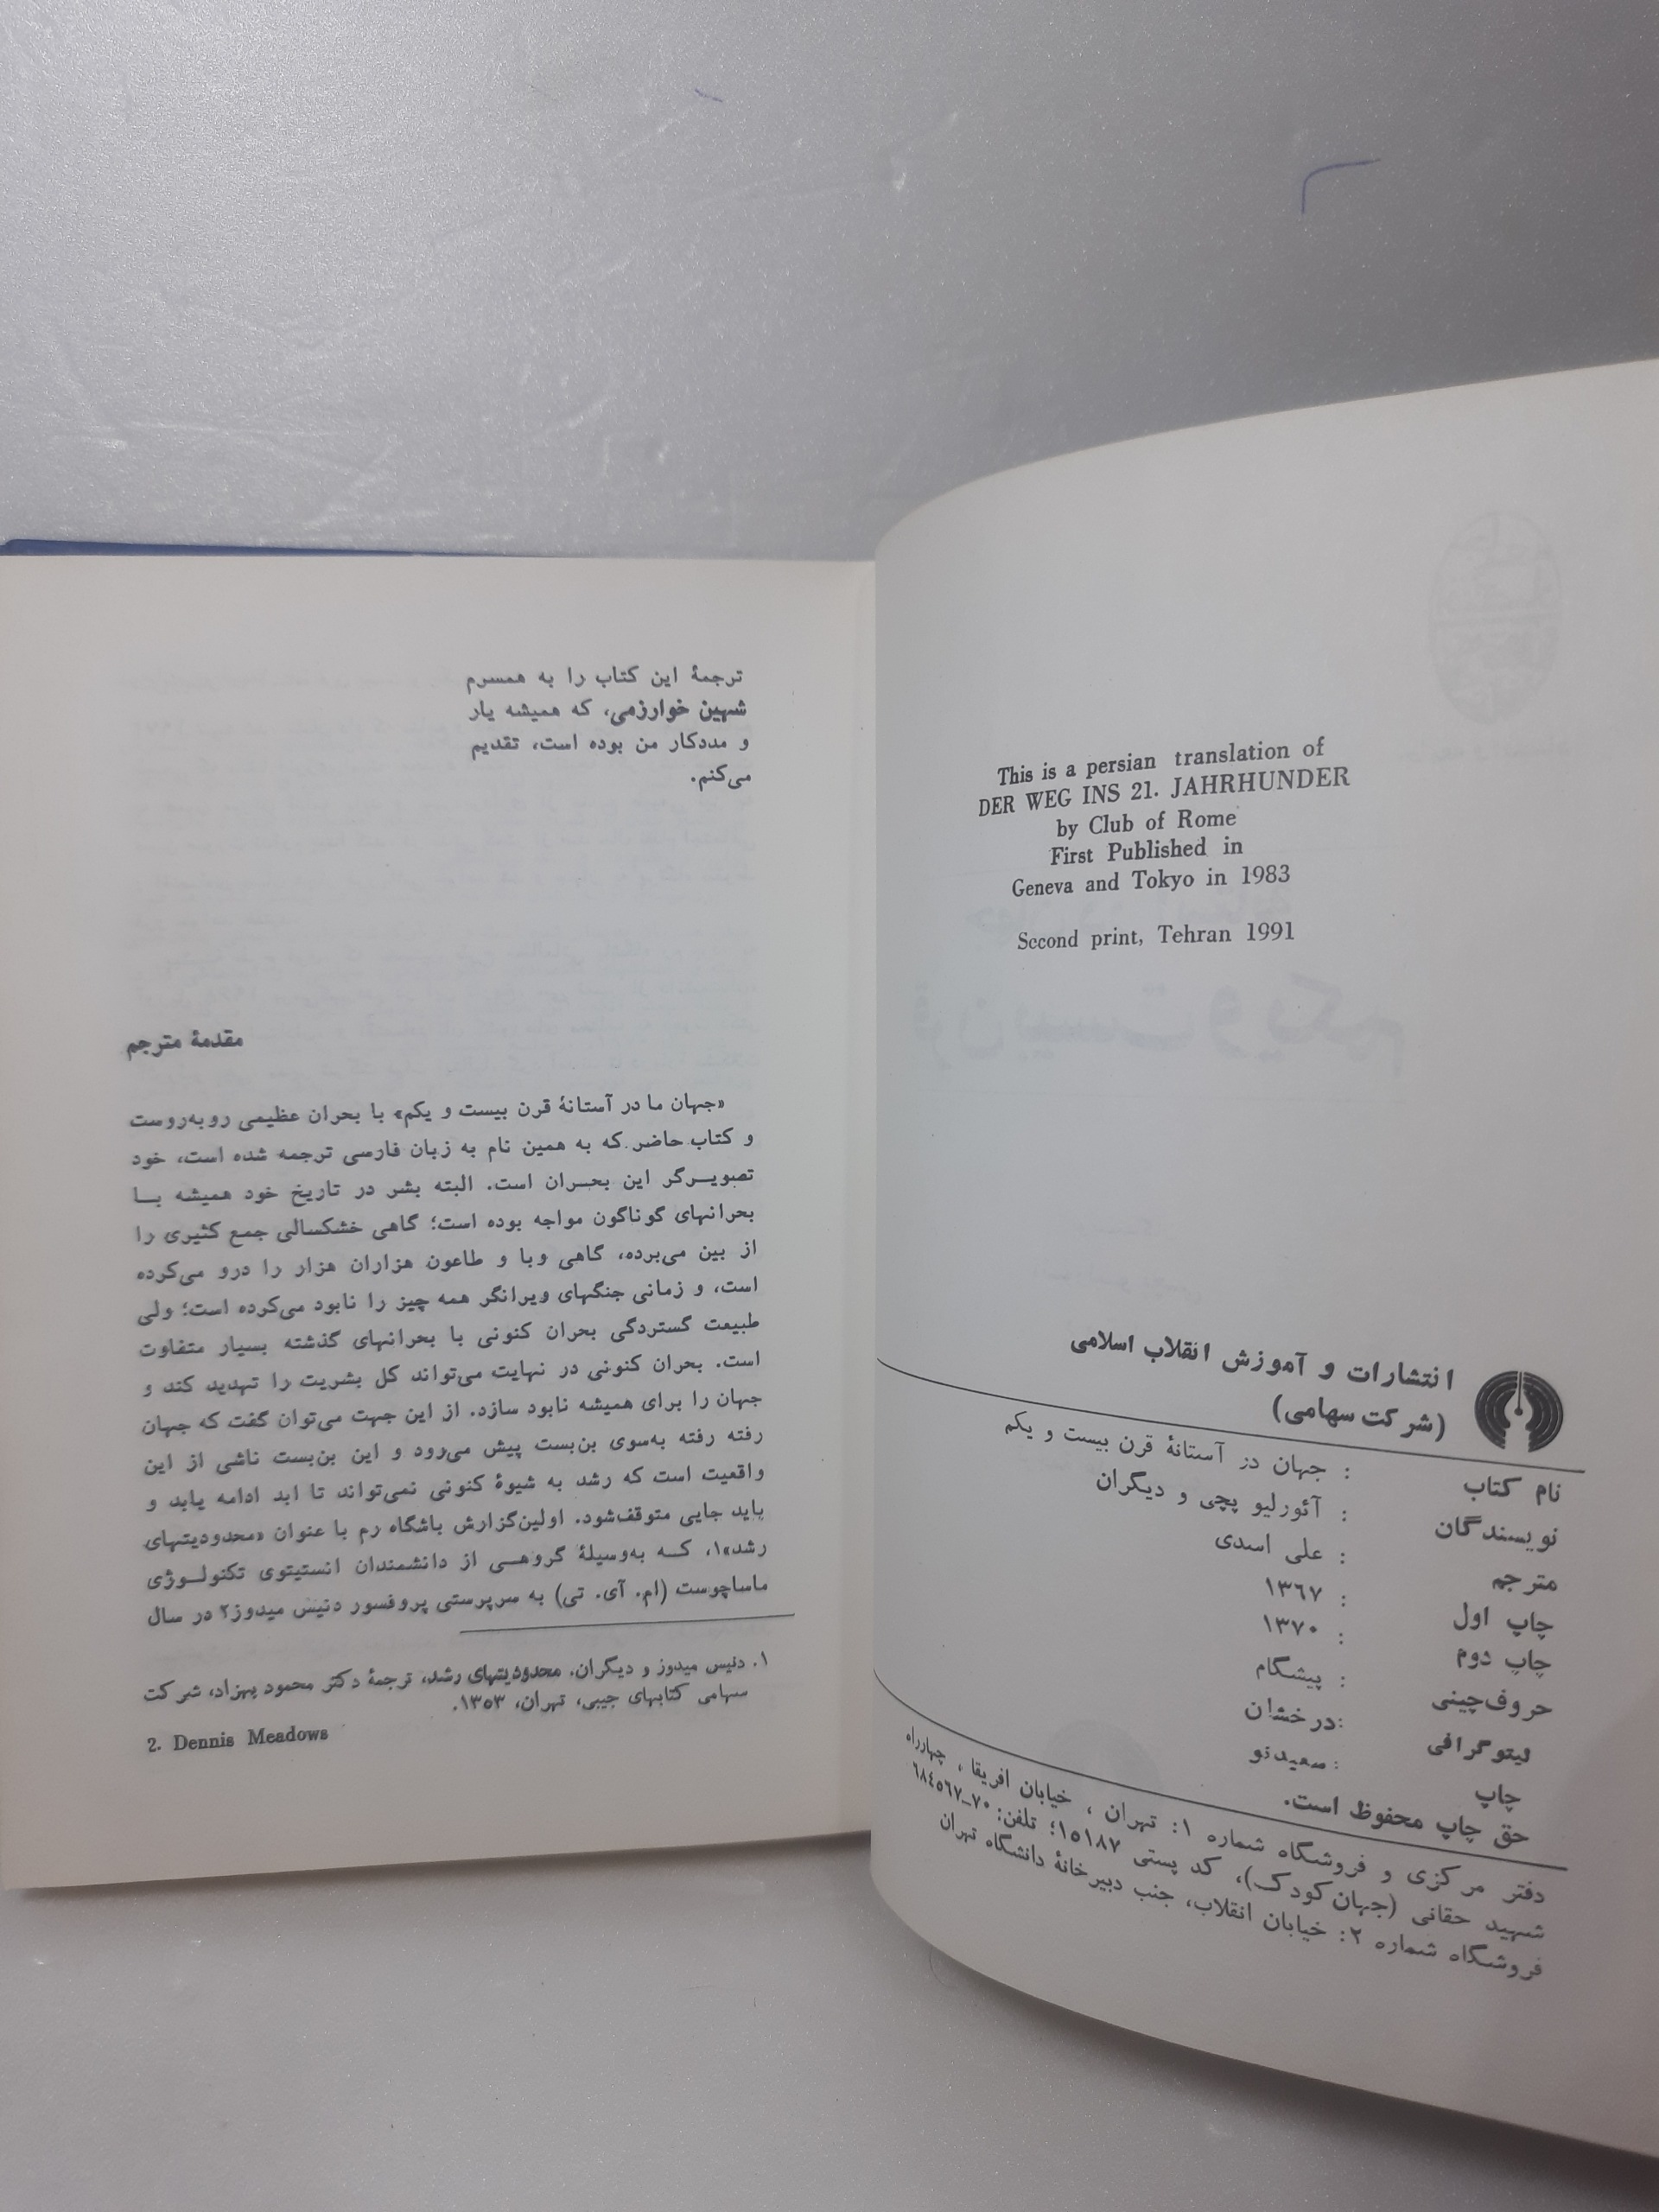 This is a persian translation of
DER WEG INS 21. JAHRHUNDER
by Club of Rome
First Published in
Geneva and Tokyo in 1983
Second print, Tehran 1991
انتشارات و آموزش انقلاب اسلامی
(شرکت سهامی)
نام کتاب : جهان در آستانهٔ قرن بیست و یکم
نویسندگان : آئورلیو پچی و دیگران
مترجم : علی اسدی
چاپ اول : ۱۳۶۷
چاپ دوم : ۱۳۷۰
حروف‌چینی : پیشگام
لیتوگرافی :درخشان
چاپ :سعیدنو
حق چاپ محفوظ است.
دفتر مرکزی و فروشگاه شماره ۱: تهران ، خیابان افریقا ، چهارراه
شهید حقانی (جهان‌کودک)، کد پستی ۱۵۱۸۷؛ تلفن: ۷۰–۶۸۴۵۶۷
فروشگاه شماره ۲: خیابان انقلاب، جنب دبیرخانهٔ دانشگاه تهران
ترجمهٔ این کتاب را به همسرم
شهین خوارزمی، که همیشه یار
و مددکار من بوده است، تقدیم
می‌کنم.
مقدمهٔ مترجم
«جهان ما در آستانهٔ قرن بیست و یکم» با بحران عظیمی روبه‌روست
و کتاب حاضر که به همین نام به زبان فارسی ترجمه شده است، خود
تصویرگر این بحران است. البته بشر در تاریخ خود همیشه با
بحرانهای گوناگون مواجه بوده است؛ گاهی خشکسالی جمع کثیری را
از بین می‌برده، گاهی وبا و طاعون هزاران هزار را درو می‌کرده
است، و زمانی جنگهای ویرانگر همه چیز را نابود می‌کرده است؛ ولی
طبیعت گستردگی بحران کنونی با بحرانهای گذشته بسیار متفاوت
است. بحران کنونی در نهایت می‌تواند کل بشریت را تهدید کند و
جهان را برای همیشه نابود سازد. از این جهت می‌توان گفت که جهان
رفته رفته به‌سوی بن‌بست پیش می‌رود و این بن‌بست ناشی از این
واقعیت است که رشد به شیوهٔ کنونی نمی‌تواند تا ابد ادامه یابد و
باید جایی متوقف‌شود. اولین‌گزارش باشگاه رم با عنوان «محدودیتهای
رشد»۱، که به‌وسیلهٔ گروهی از دانشمندان انستیتوی تکنولوژی
ماساچوست (ام. آی. تی) به سرپرستی پروفسور دنیس میدوز۲ در سال
۱. دنیس میدوز و دیگران. محدودیتهای رشد، ترجمهٔ دکتر محمود بهزاد، شرکت
سهامی کتابهای جیبی، تهران، ۱۳۵۳.
2. Dennis Meadows